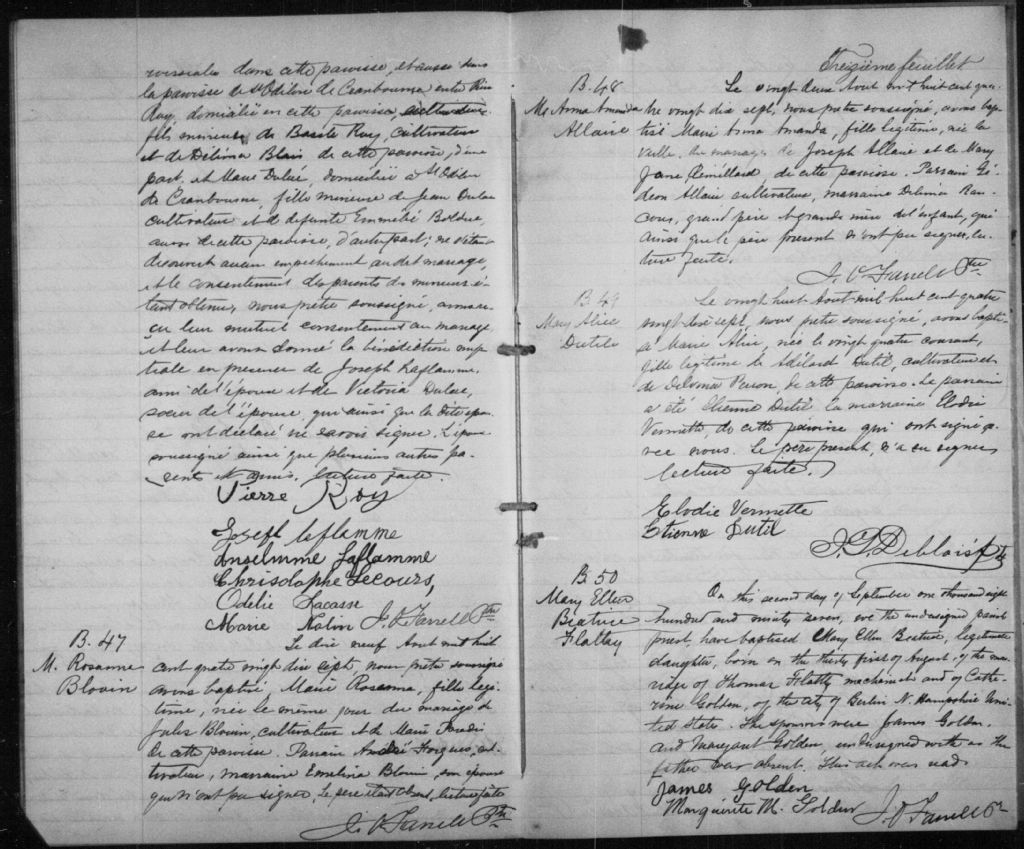 dans cette paroisse, et aussi dans
la paroisse de St Odilon de Cranbourne entre
Roy, domicilié en cette paroisse
fils mineur de Basile Roy, cultivateur
et de Délima Blais de cette paroisse, d'une
part, et Marie Dulac, domiciliée à St Odilon
de Cranbourne, fille mineure de Jean Dulac
cultivateur et de défunte Emmélie Bolduc,
aussi de cette paroisse, d'autre part; ne s'étant
découvert aucun empêchement au dit mariage,
et le consentement des parents des mineurs é-
tant obtenu, nous prêtre soussigné, avons re-
çu leur mutuel consentement au mariage,
et leur avons donné la bénédiction nup-
tiale en présence de Joseph Laflamme,
ami de l'époux et de Victoria Dulac,
soeur de l'épouse, qui ainsi que la dite épou-
se ont déclaré ne savoir signer. L'époux
soussigné ainsi que plusieurs autres pa-
rents et amis, lecture faite.
Pierre Roy
Joseph leflamme
Anselmme Laflamme
Chrisolaphe Lecours,
Odélie Lacasse
Marie Nolin J. O'Farrell Ptre
B. 47
M. Rosanna
Blouin
Le dix neuf Aout mil huit
cent quatre vingt dix sept, nous prêtre soussigné
avons baptisé, Marie Rosanna, fille légi-
time, née le même jour du mariage de
Jules Blouin, cultivateur et de Marie
de cette paroisse. Parrain André Forgues, cul-
tivateur, marraine Emelina Blouin, son épouse
qui n'ont pu signer, le père était absent, lecture faite
J. O'Farrell Ptre
Treizième feuillet
B. 48
M. Anna Amanda
Allaire
Le vingt deux Aout mil huit cent qua-
tre vingt dix sept, nous prêtre soussigné, avons bap-
tisé Marie Anna Amanda, fille légitime, née la
veille, du mariage de Joseph Allaire et de Mary
Jane Rémillard de cette paroisse. Parrain Gé-
déon Allaire cultivateur, marraine Delima Ran-
cour, grand père et grande mère de l'enfant, qui
ainsi que le père présent n'ont pu signer, lec-
ture faite.
J. O'Farrell Ptre
B 49
Mary Alice
Dutile
Le vingt huit Aout mil huit cent quatre
vingt dix sept, nous prêtre soussigné, avons bapti-
sé Marie Alice, née le vingt quatre courant,
fille légitime de Adélard Dutil, cultivateur et
de Delvina de cette paroisse. Le parrain
a été Etienne Dutil la marraine Elodie
Vermette, de cette paroisse qui ont signé a-
vec nous. Le père présent, n'a su signer,
lecture faite.
Elodie Vermette
Etienne Dutil
Debloisptre
B. 50
Mary Ellen
Beatrice
Flattay
On this second day of September one thousand eight
hundred and ninety seven, we the undersigned parish
priest, have baptised Mary Ellen Beatrice, legitimate
daughter, born on the thirty first of August, of the mar-
riage of Thomas Flatty machinist and of Cathe-
rine Golden, of the city of Berlin N. Hampshire Uni-
ted States. The sponsors were James Golden
and Margaret Golden, undersigned with us the
father was absent. This act was read
James Golden
Marguerite M. Golden J. O'Farrell Ptr